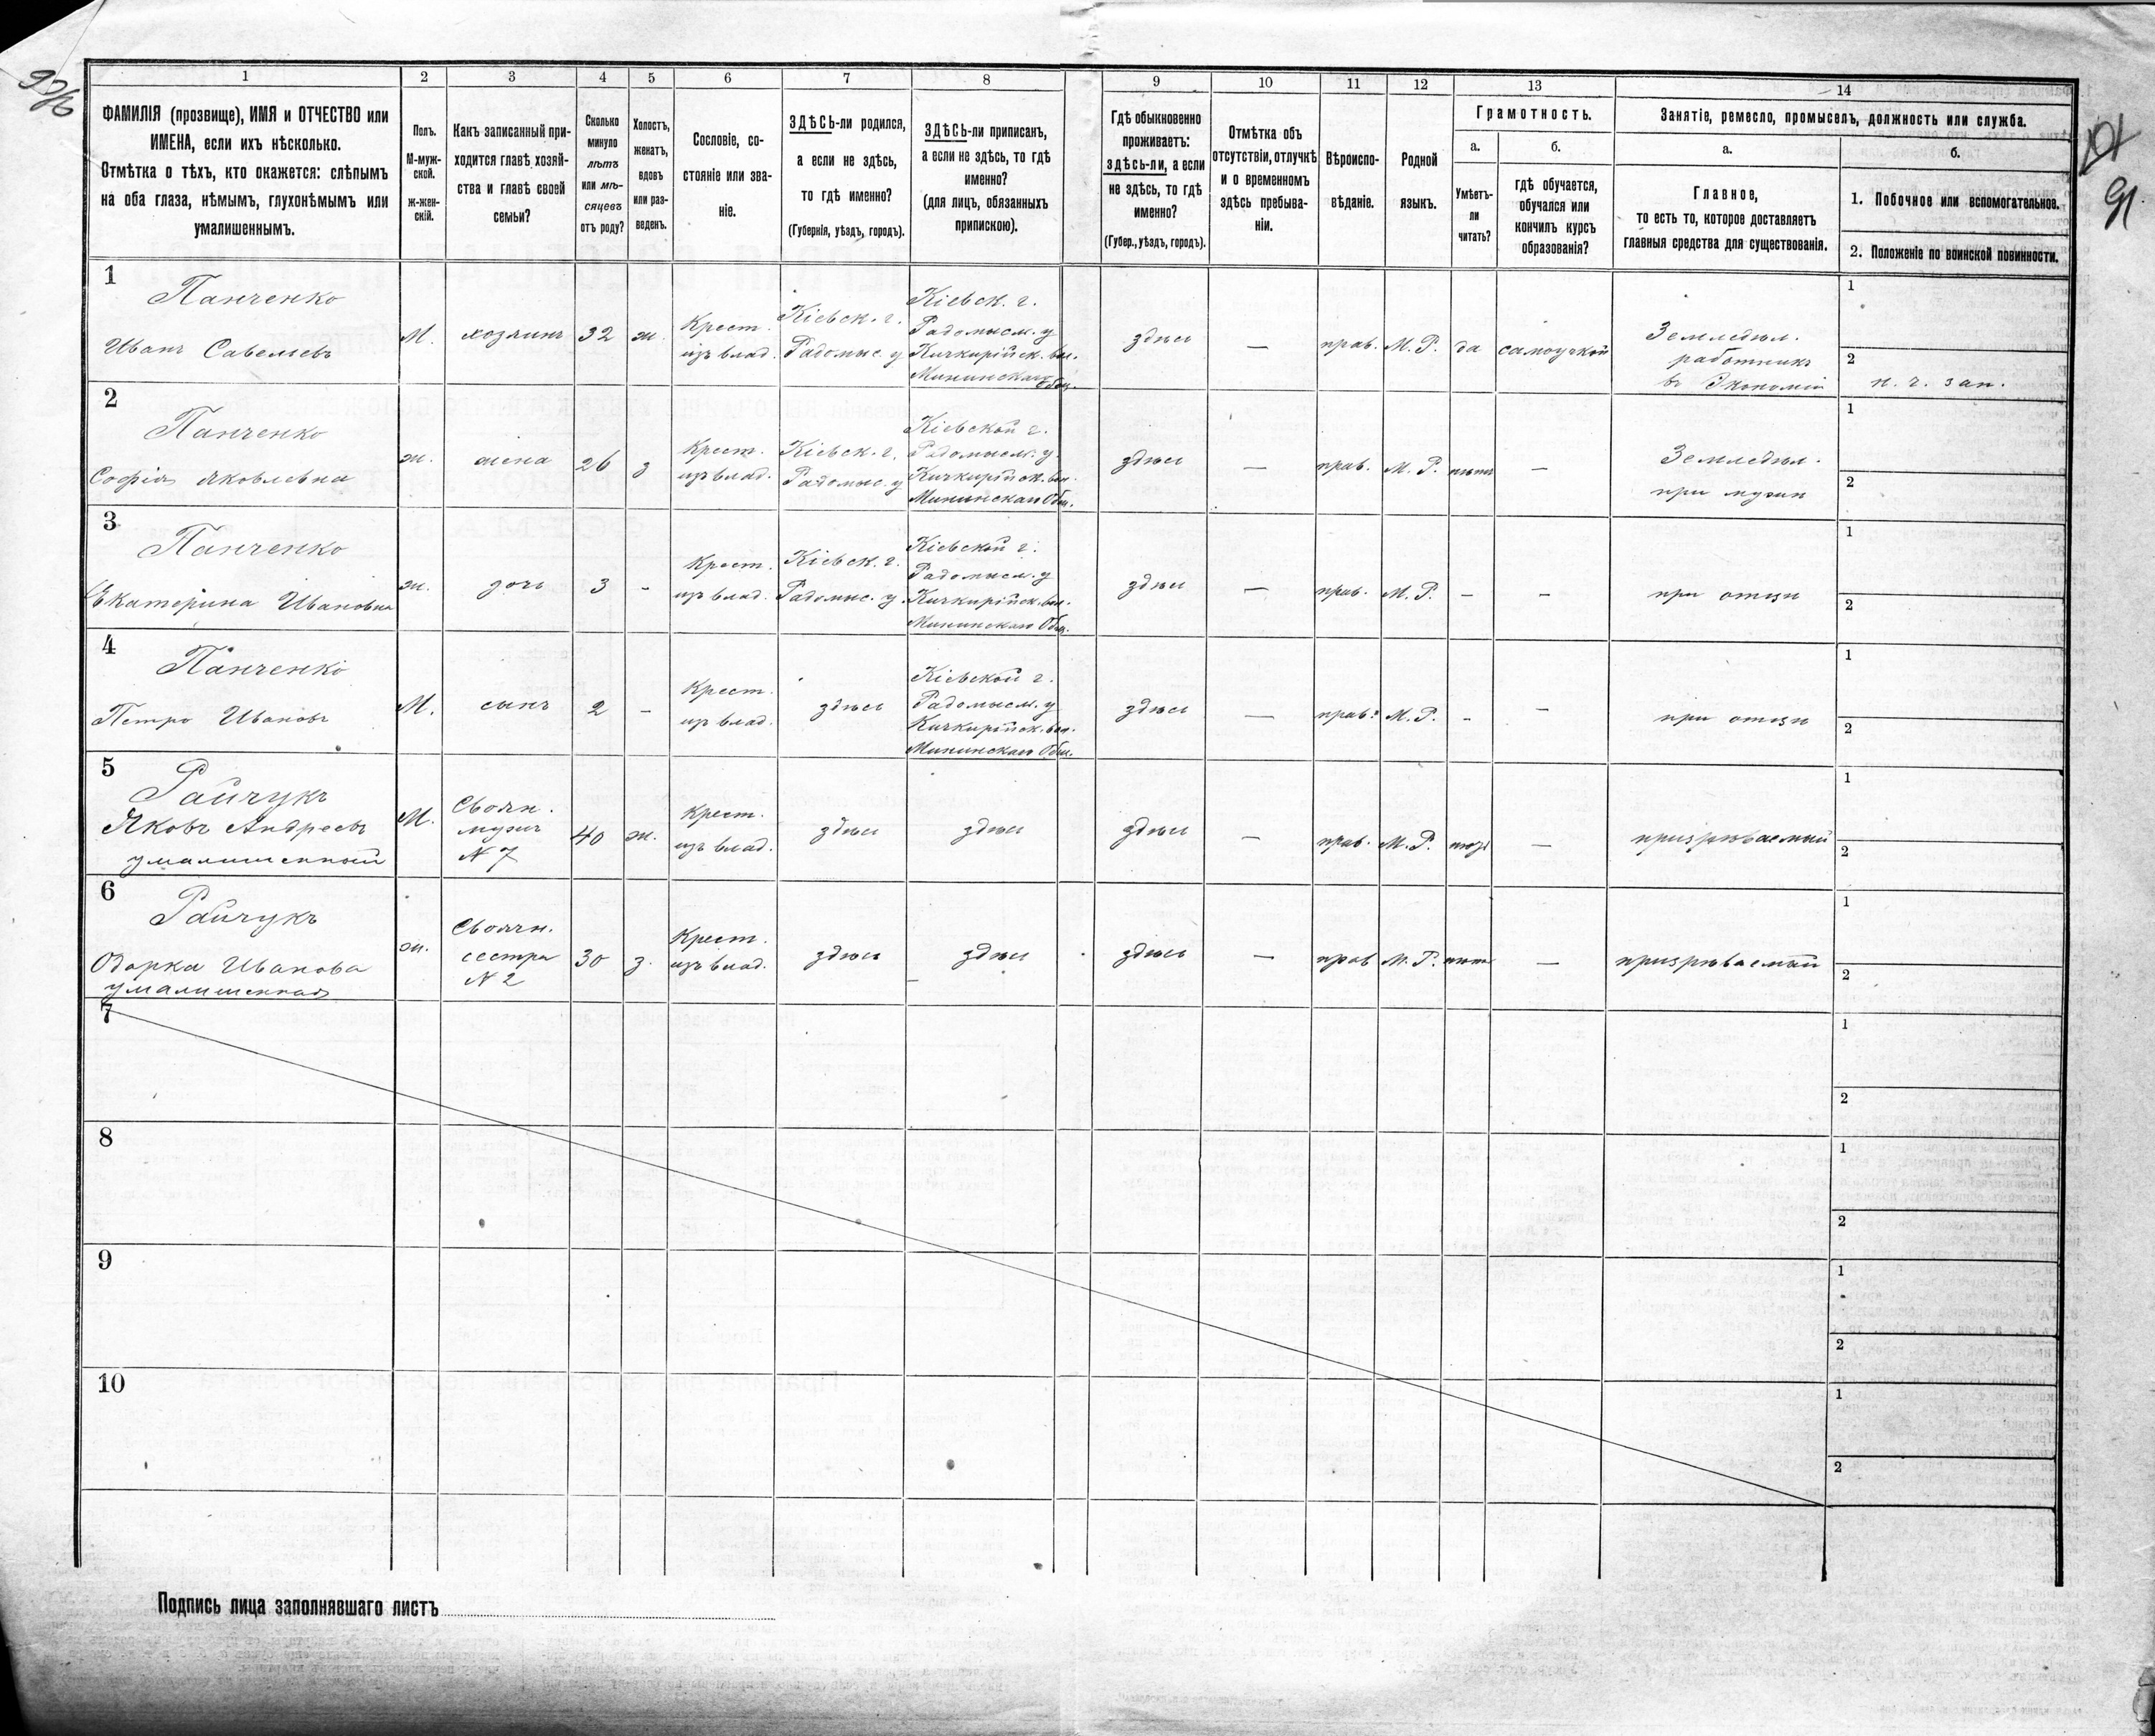 93/6
1 2 3 4 5 6 7 8 9 10 11 12 13 14
ФАМИЛІЯ (прозвище), ИМЯ и ОТЧЕСТВО или
ИМЕНА, если ихъ нѣсколько.
Отмѣтка о тѣхъ, кто окажется: слѣпымъ
на оба глаза, нѣмымъ, глухонѣмымъ или
умалишеннымъ.
Полъ.
М-муж-
ской.
Ж-жен-
скій.
Какъ записанный при-
ходится главѣ хозяй-
ства и главѣ своей
семьи?
Сколько
минуло
лѣтъ
или мѣ-
сяцевъ
отъ роду?
Холостъ,
женатъ,
вдовъ
или раз-
веденъ.
Сословіе, со-
стояніе или зва-
ніе.
ЗДѢСЬ-ли родился,
а если не здѣсь,
то гдѣ именно?
(Губернія, уѣздъ, городъ).
ЗДѢСЬ-ли приписанъ,
а если не здѣсь, то гдѣ
именно?
(для лицъ, обязанныхъ
припискою).
Гдѣ обыкновенно
проживаетъ:
здѣсь-ли, а если
не здѣсь, то гдѣ
именно?
(Губер., уѣздъ, городъ).
Отмѣтка объ
отсутствіи, отлучкѣ
и о временномъ
здѣсь пребыва-
ніи.
Вѣроиспо-
вѣданіе.
Родной
языкъ.
Грамотность.
а.
Умѣетъ-
ли
читать?
б.
гдѣ обучается,
обучался или
кончилъ курсъ
образованія?
Занятіе, ремесло, промыселъ, должность или служба.
а.
Главное,
то есть то, которое доставляетъ
главныя средства для существованія.
б.
1. Побочное или вспомогательное.
2. Положеніе по воинской повинности.
91
1
Панченко
Иванъ Савельевъ
М.
хозяинъ
32
ж.
Крест.
изъ влад.
Кіевск. г.
Радомыс. у
Кіевск. г.
Радомысл. у
Кичкирійск. вол.
Мининскаго Общ.
здѣсь
—
прав.
М. Р.
да
самоучкой
Земледѣл.
работникъ
въ Экономіи
1
2
н. ч. зап.
2
Панченко
Софія Яковлевна
ж.
жена
26
з
Крест.
изъ влад.
Кіевск. г.
Радомыс. у
Кіевской г.
Радомысл. у
Кичкирійск. вол.
Мининскаго Общ.
здѣсь
—
прав.
М. Р.
нѣтъ
—
Земледѣл.
при мужи
1
2
3
Панченко
Екатерина Ивановна
ж.
дочь
3
-
Крест.
изъ влад.
Кіевск. г.
Радомыс. у
Кіевской г.
Радомысл. у
Кичкирійск. вол.
Мининскаго Общ.
здѣсь
—
прав.
М. Р.
-
-
при отцы
1
2
4
Панченко
Петро Ивановъ
М.
сынъ
2
-
Крест.
изъ влад.
здѣсь
Кіевской г.
Радомысл. у
Кичкирійск. вол.
Мининскаго Общ.
здѣсь
—
прав.
М. Р.
-
-
при отцы
1
2
5
Райчукъ
Яковъ Андреевъ
умалишенный
М.
Своян.
мужъ
N 7
40
ж.
Крест.
изъ влад.
здѣсь
здѣсь
здѣсь
—
прав.
М. Р.
—
призрѣваемый
1
2
6
Райчукъ
Одарка Иванова
умалишенная
ж.
Своячн.
сестра
N 2
30
з.
Крест.
изъ влад.
здѣсь
здѣсь
здѣсь
—
прав
М. Р.
нѣт
—
призрѣваемый
1
2
7
1
2
8
1
2
9
1
2
10
1
2
Подпись лица заполнявшаго листъ